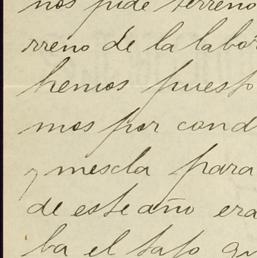 nos pide terreno
rreno de la labor
hemos puesto
mos por cond
y mescla para
de este año era
ba el tajo qu